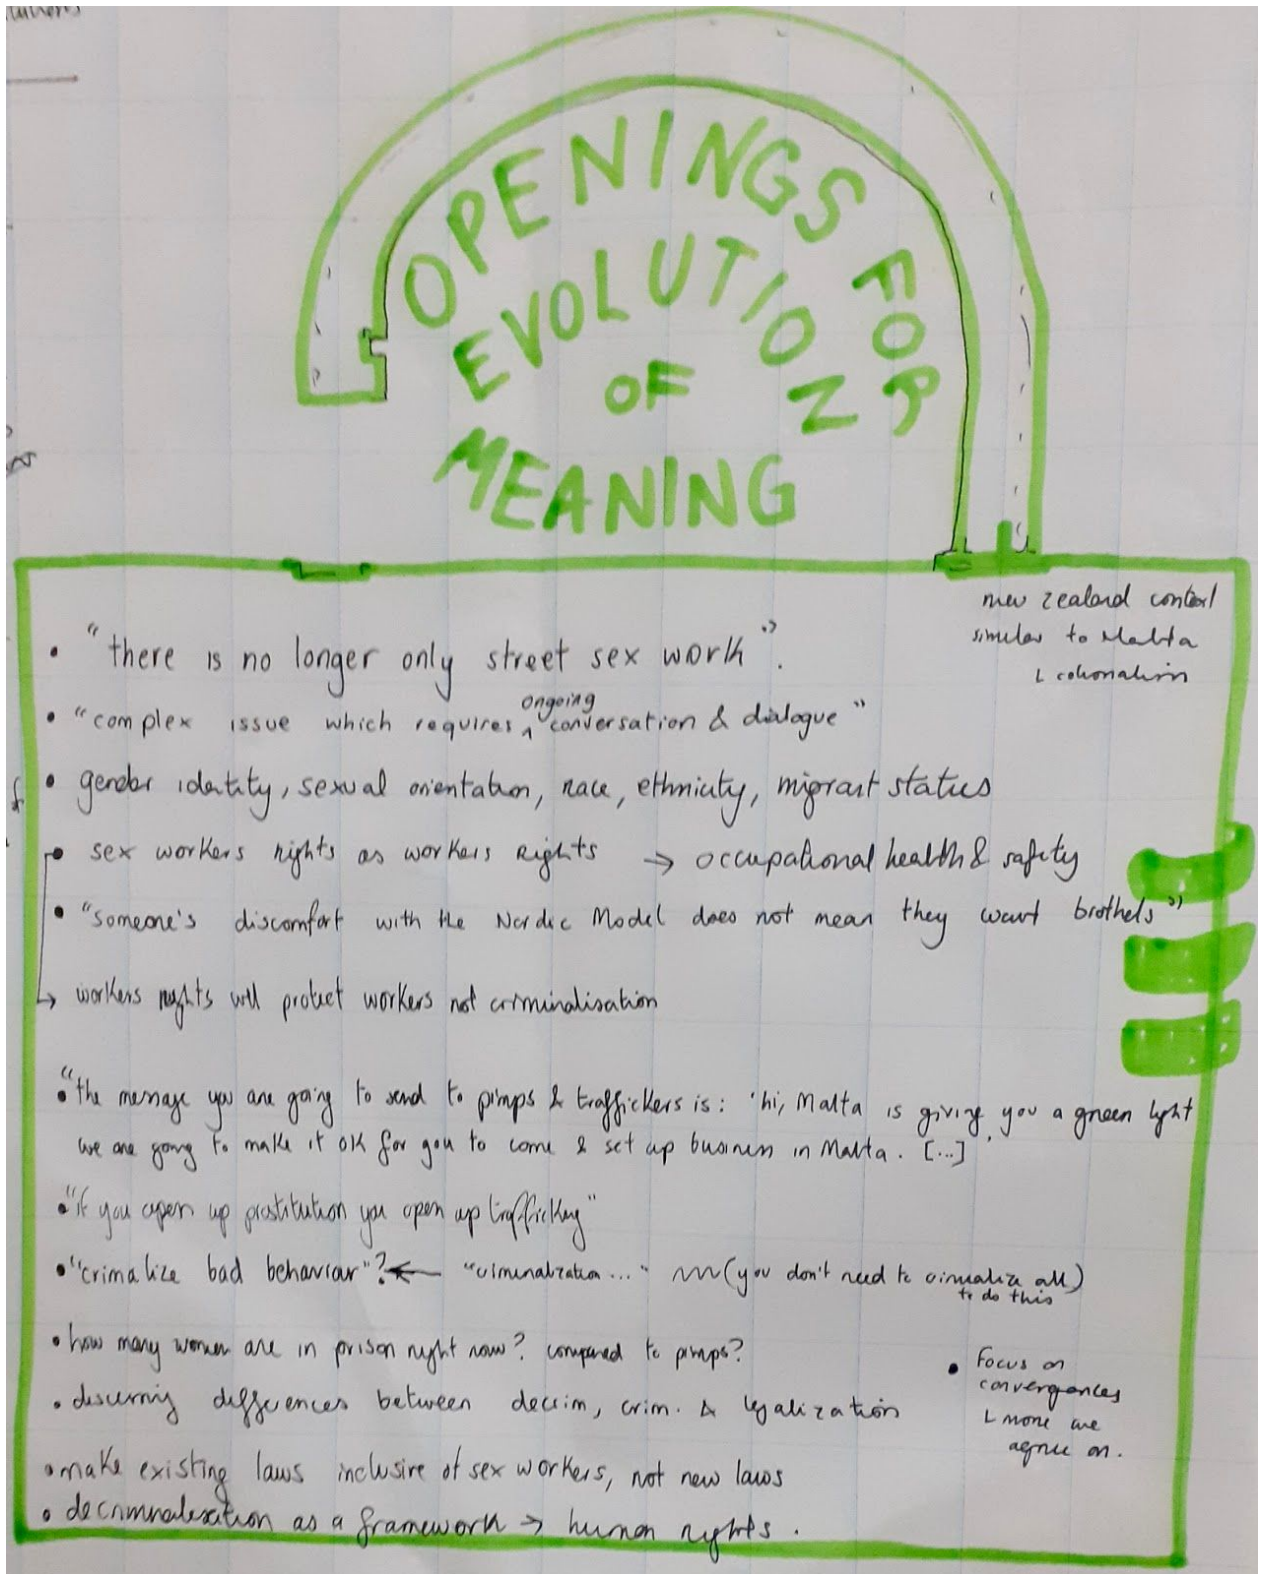 OPENINGS FOR
EVOLUTION
OF
MEANING
new zealand context
similar to Malta
L colonialism
• "there is no longer only street sex work".
ongoing
• "complex issue which requires ^ conversation & dialogue"
• gender identity, sexual orientation, race, ethnicity, migrant status
• sex workers rights as workers rights → occupational health & safety
• "someone's discomfort with the Nordic Model does not mean they want brothels"
→ workers rights will protect workers not criminalisation
• "the message you are going to send to pimps & traffickers is: 'hi, Malta is giving you a green light
we are going to make it ok for you to come & set up business in Malta. [...]'
• "if you open up prostitution you open up trafficking"
• "crimalize bad behaviour"? ← "criminalization..." (you don't need to all)
to do this
• how many women are in prison right now? compared to pimps?
• Focus on
convergences
L more we
agree on.
• discerning differences between decrim, crim. & legalization
• make existing laws inclusive of sex workers, not new laws
• decriminalisation as a framework → human rights.